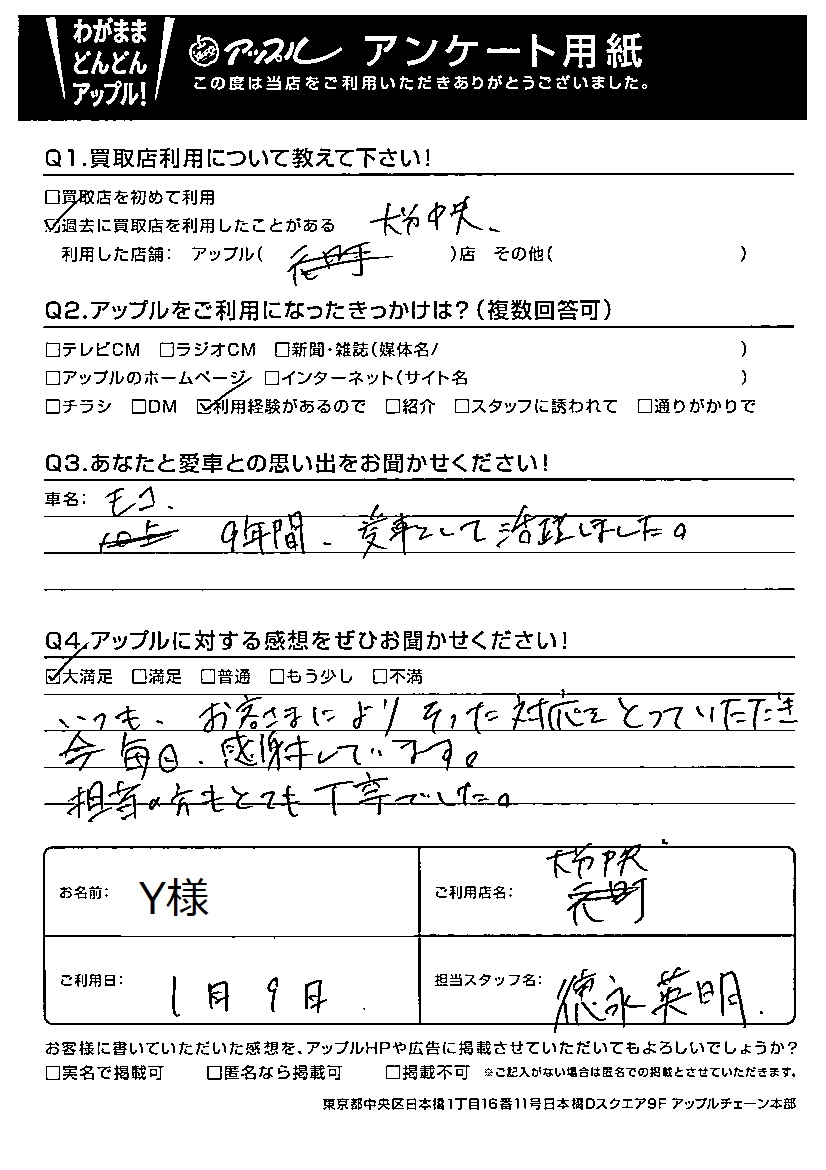 わがまま
どんどん
アップル!
アップル アンケート用紙
この度は当店をご利用いただきありがとうございました。
Q1.買取店利用について教えて下さい!
□買取店を初めて利用
☑過去に買取店を利用したことがある 大分中央、
利用した店舗: アップル( )店 その他( )
Q2.アップルをご利用になったきっかけは?(複数回答可)
□テレビCM □ラジオCM □新聞・雑誌(媒体名/ )
□アップルのホームページ □インターネット(サイト名 )
□チラシ □DM ☑利用経験があるので □紹介 □スタッフに誘われて □通りがかりで
Q3.あなたと愛車との思い出をお聞かせください!
車名: モコ、
9年間、愛車として活躍しました。
Q4.アップルに対する感想をぜひお聞かせください!
☑大満足 □満足 □普通 □もう少し □不満
いつも、お客さまによりそった対応をとっていただき
今毎日、感謝しています。
担当の方もとても丁寧でした。
お名前: Y様
ご利用店名: 大分中央
ご利用日: 1月9日
担当スタッフ名: 徳永英明.
お客様に書いていただいた感想を、アップルHPや広告に掲載させていただいてもよろしいでしょうか?
□実名で掲載可 □匿名なら掲載可 □掲載不可 ※ご記入がない場合は匿名での掲載とさせていただきます。
東京都中央区日本橋1丁目16番11号日本橋Dスクエア9F アップルチェーン本部